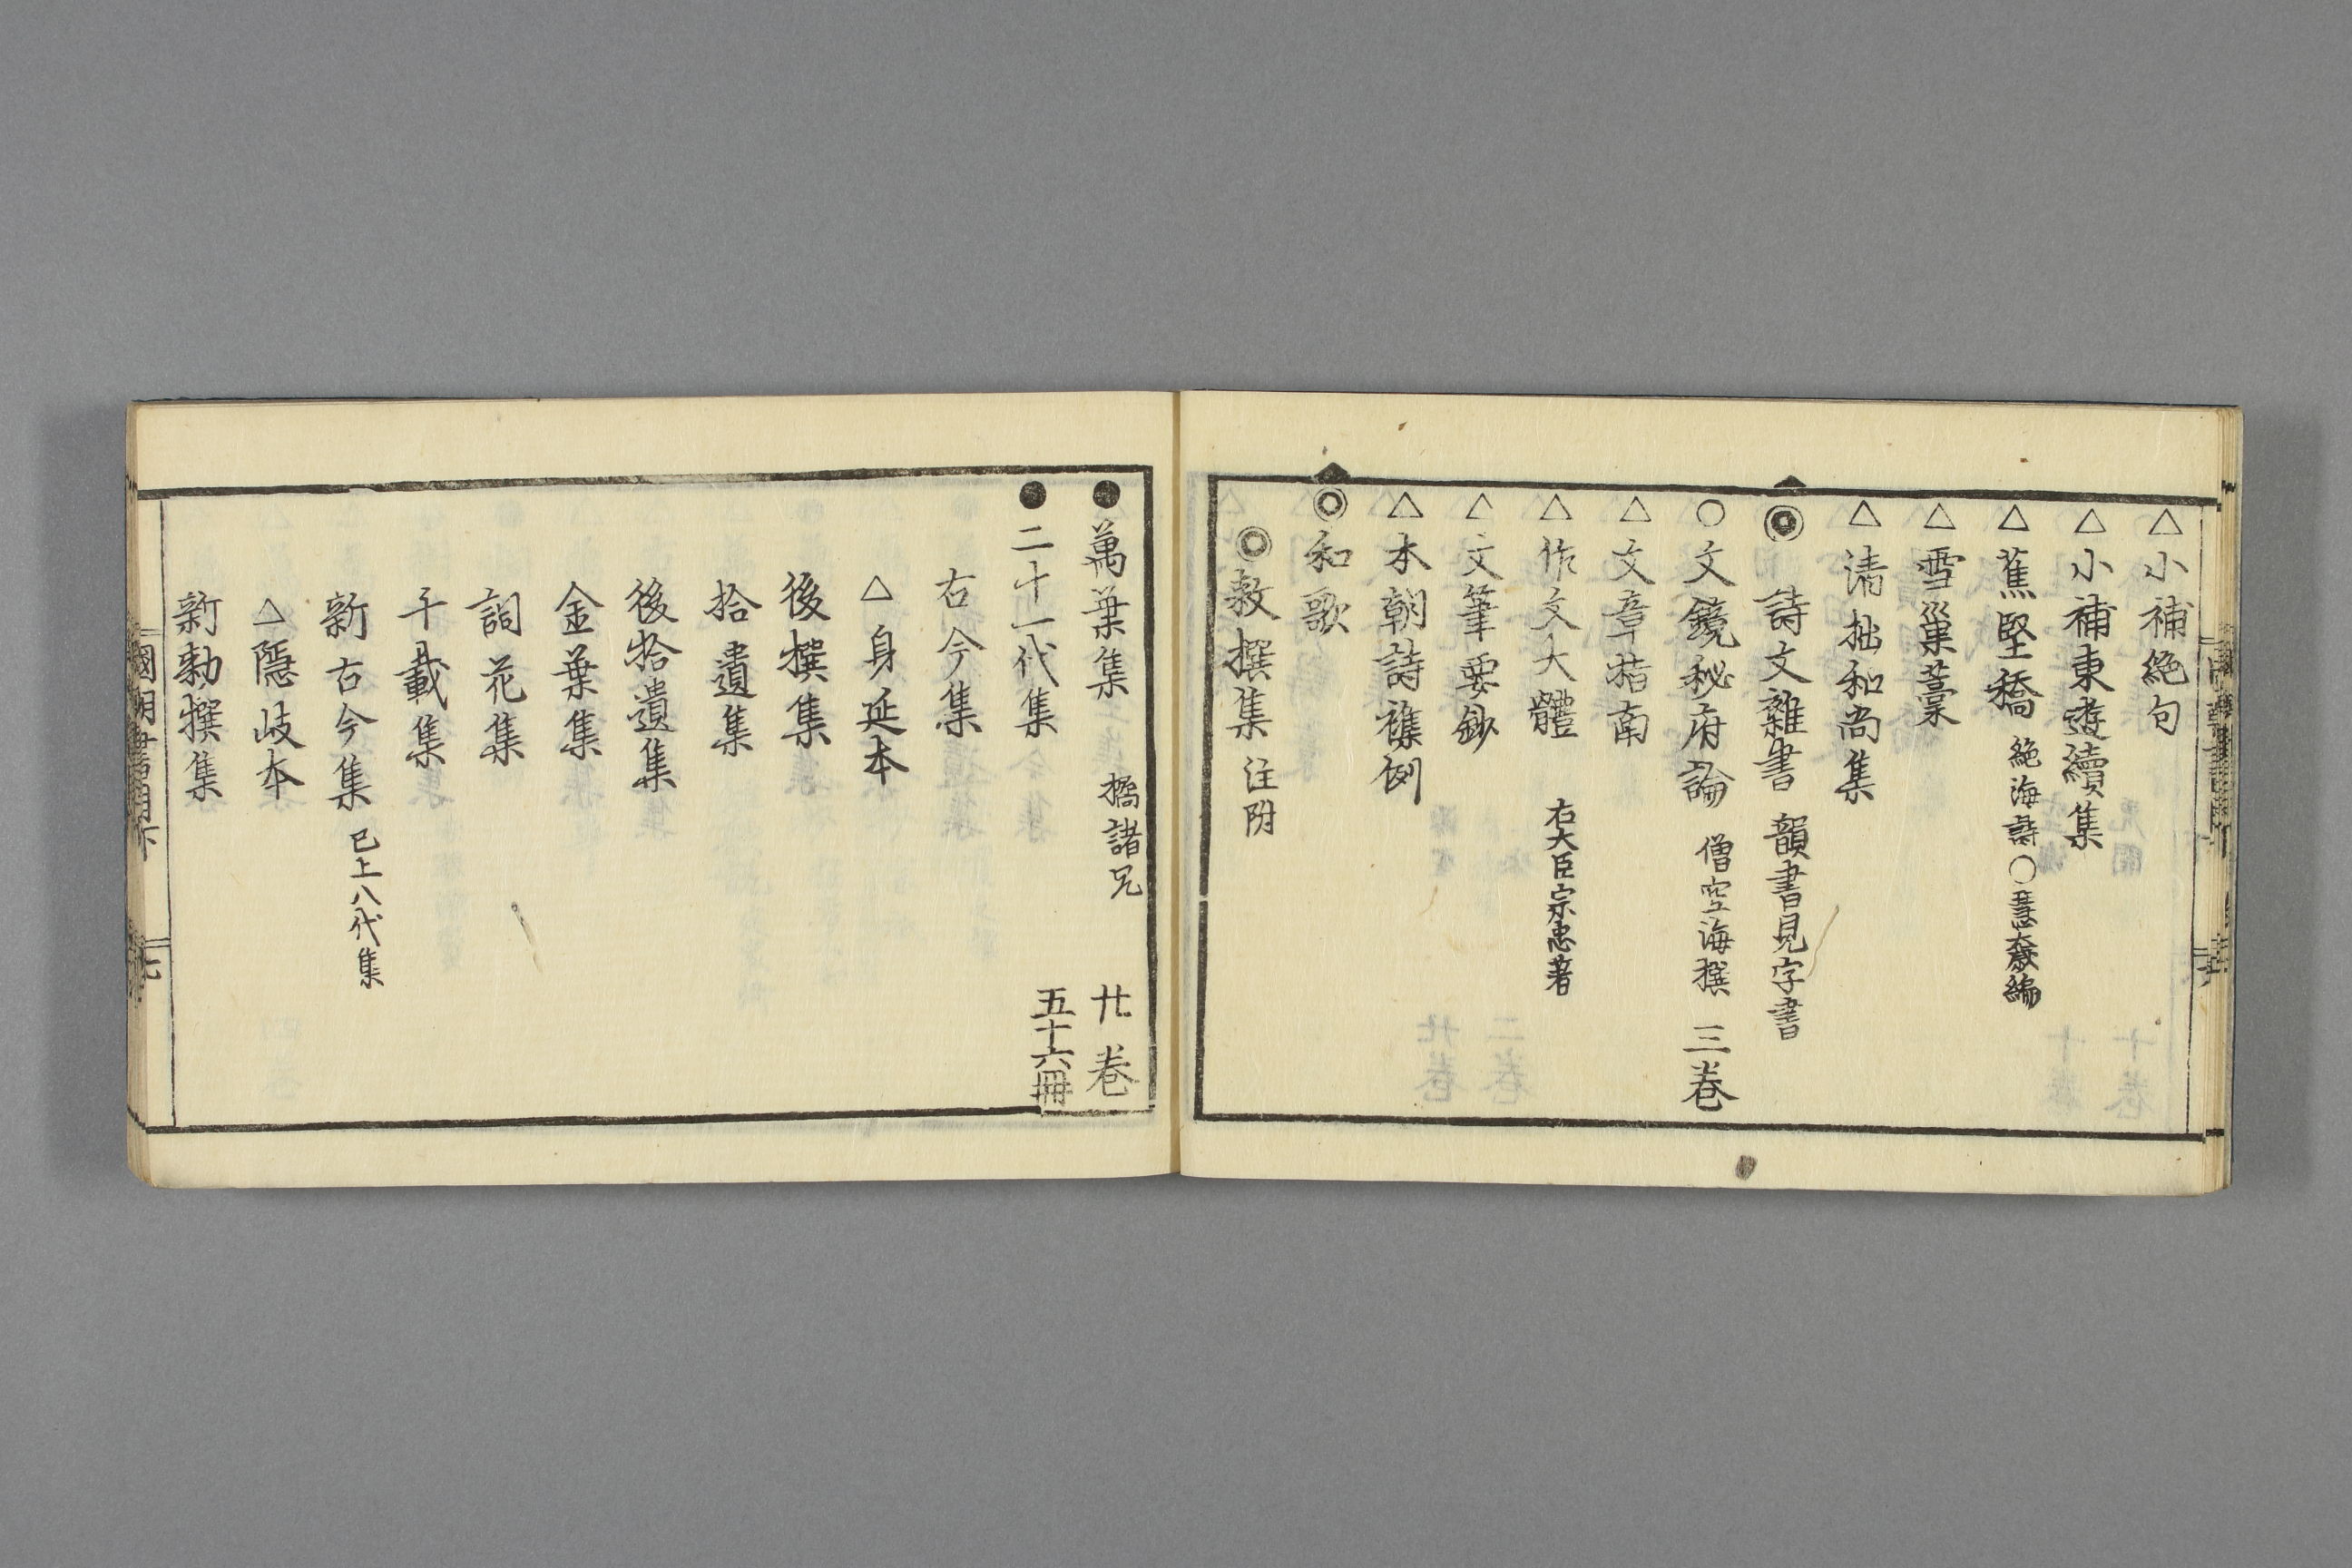 △小補絶句
△小補東遊續集
△蕉堅稿 絶海詩○慧奯編
△雪巢藁
△清拙和尚集
◎詩文雜書 韻書見字書
○文鏡秘府論 僧空海撰 三巻
△文章指南
△作文大體 右大臣宗忠著
△文筆要鈔
△本朝詩襍例
◎和歌
◎敕撰集 注附
●萬葉集 橘諸兄 廿巻
●二十一代集 五十六冊
古今集
△身延本
後撰集
拾遺集
後拾遺集
金葉集
詞花集
千載集
新古今集 已上八代集
△隠岐本
新勅撰集
國朝書目下 七